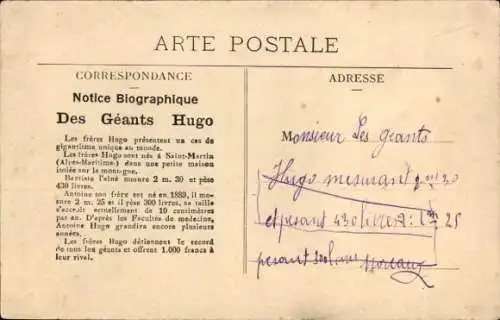 ARTE POSTALE
CORRESPONDANCE
Notice Biographique
Des Géants Hugo
Les frères Hugo présentent un cas de
gigantisme unique au monde.
Les frères Hugo sont nés à Saint-Martin
(Alpes-Maritime) dans une petite maison
isolée sur la montagne.
Baptiste l'aîné mesure 2 m. 30 et pèse
430 livres.
Antoine son frère est né en 1889, il me-
sure 2 m. 25 et il pèse 300 livres, sa taille
s'accroît actuellement de 10 centimètres
par an. D'après les Facultés de médecine,
Antoine Hugo grandira encore plusieurs
années.
Les frères Hugo détiennent le record
de tous les géants et offrent 1.000 francs à
leur rival.
ADRESSE
Monsieur Les géants
Hugo mesurant 2m 30
et pesant 430 livres: 2m 25
pesant 300 livres